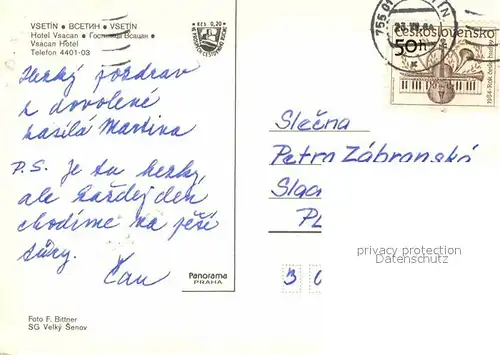 VSETÍN • ВСЕТИН • VSETÍN
Hotel Vsacan • Гостиница Всацан •
Vsacan Hotel
Telefon 4401-03
Kčs 0,20
Hezký pozdrav
z dovolené
zasílá Martina
P.S. Je tu hezky,
ale každej den
chodíme na pěší
túry.
Čau
Panorama
PRAHA
Foto F. Bittner
SG Velký Šenov
755 01
Československo
50h
1984: Rok české hudby
Slečna
Petra Zábranská
Slaa
PL
privacy protection
Datenschutz
3